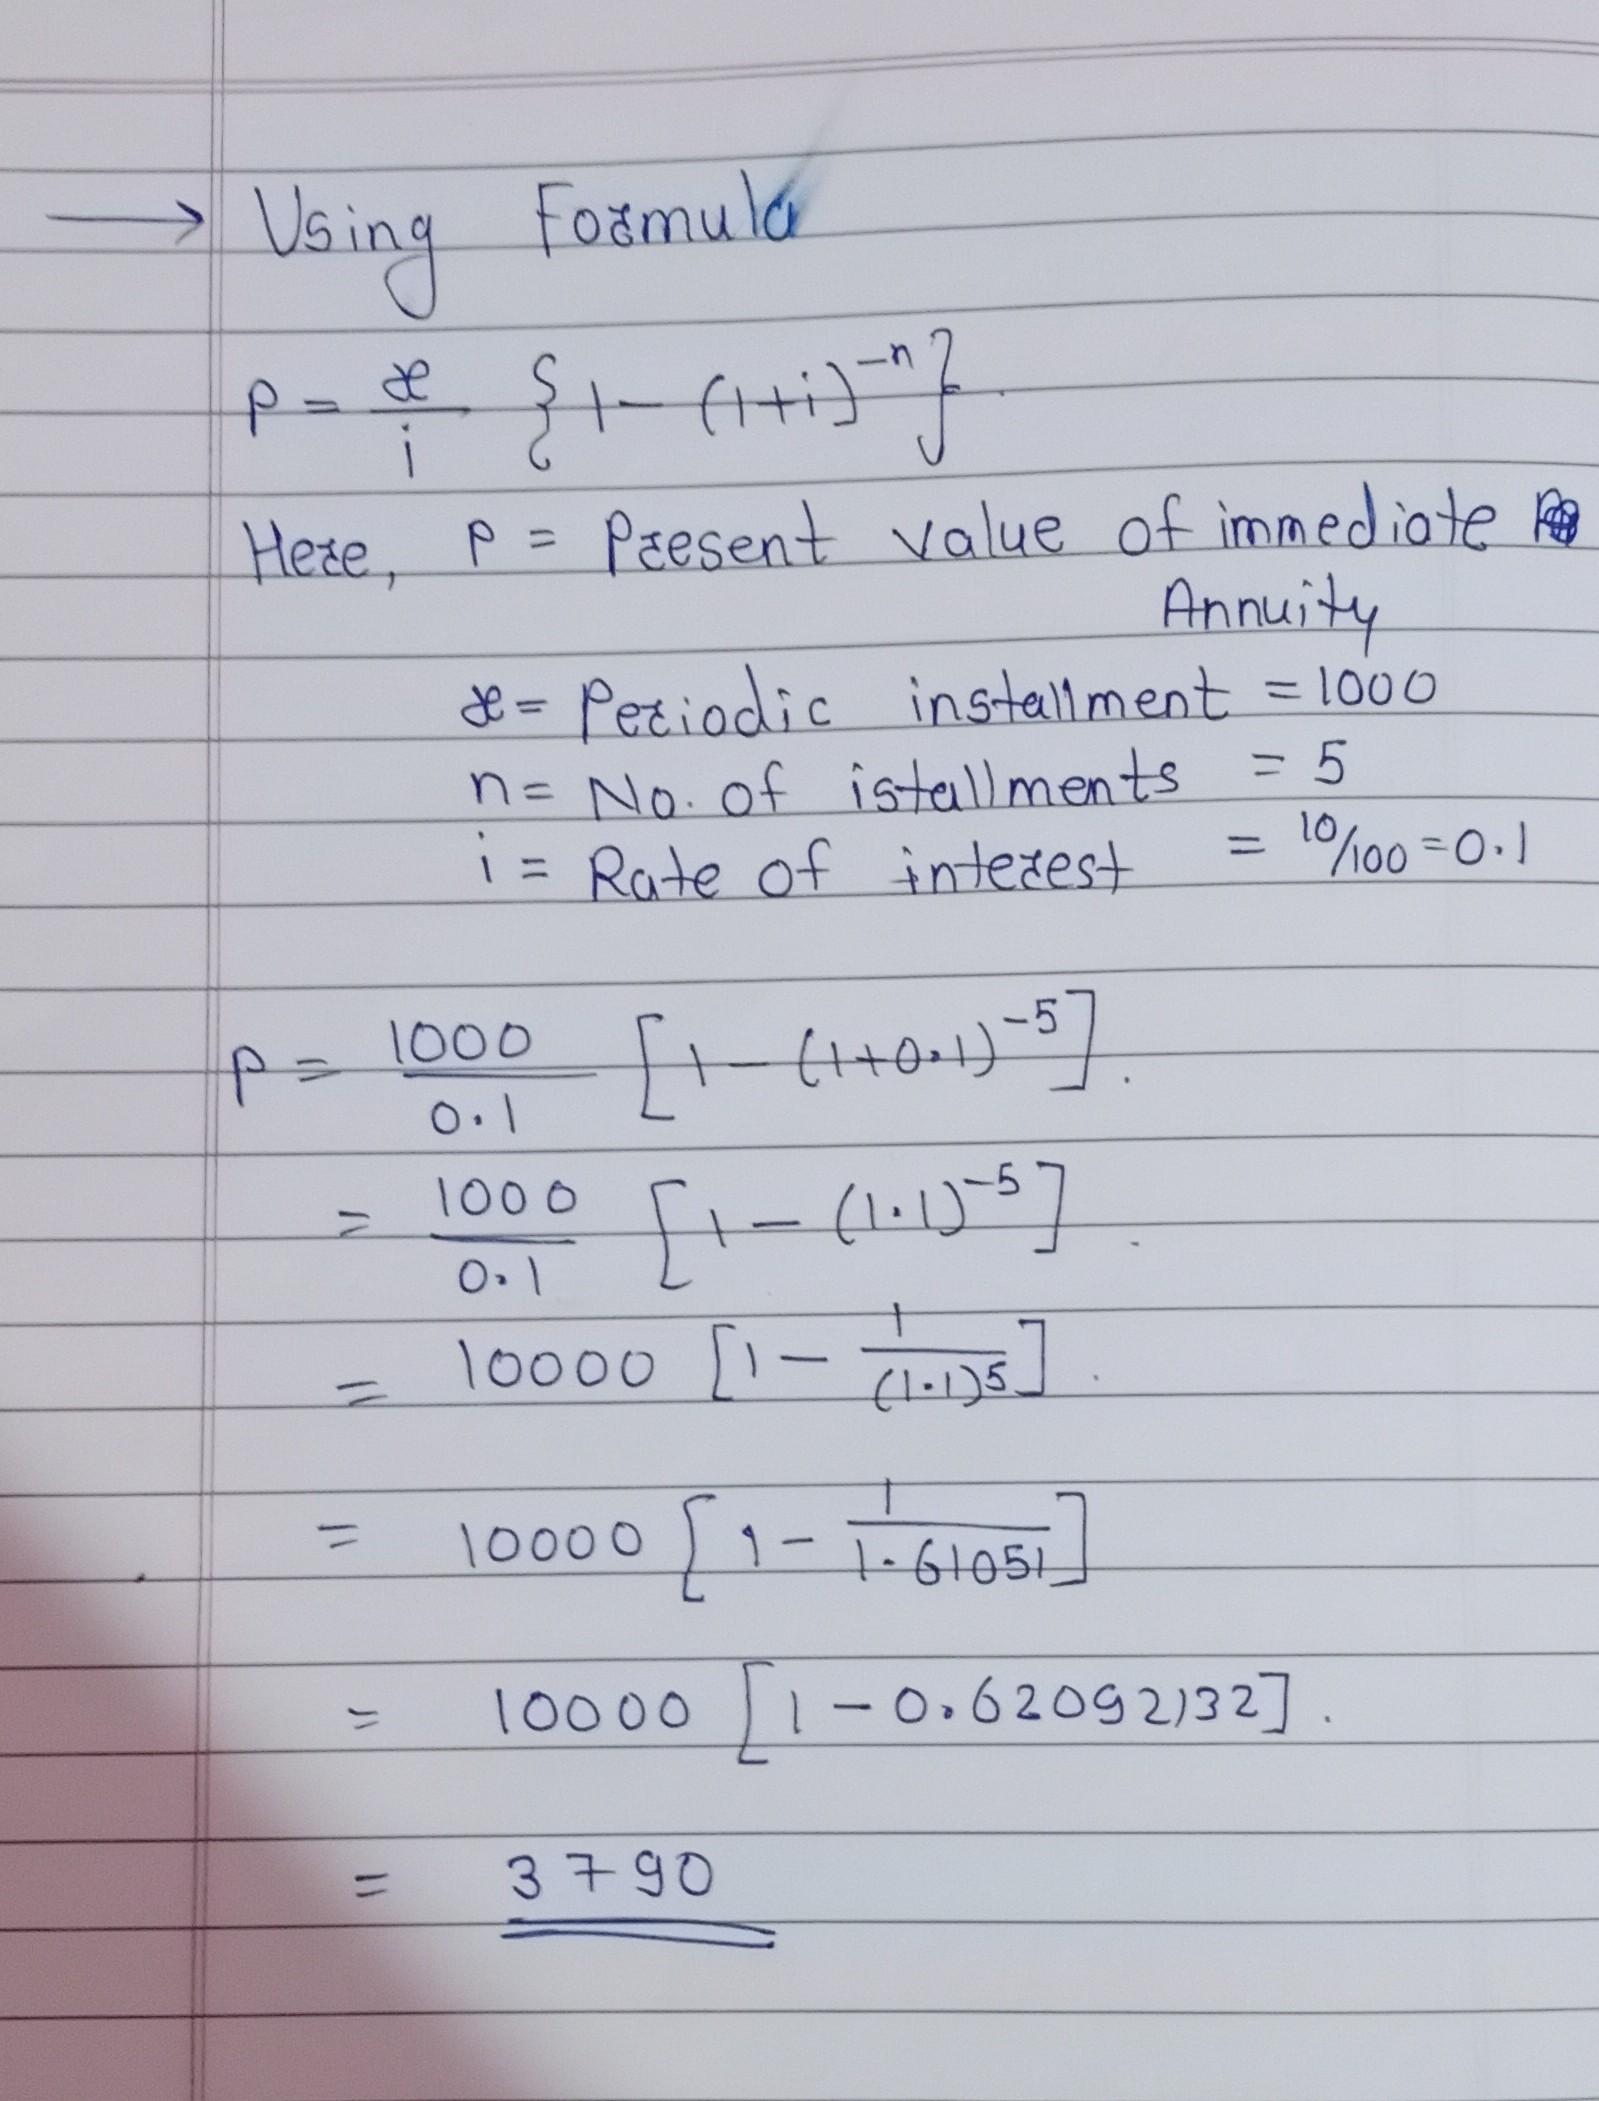 → Using Formula
P = x/i {1 - (1+i)^-n}
Here, P = Present value of immediate
Annuity
x = Periodic installment = 1000
n = No. of istallments = 5
i = Rate of interest = 10/100 = 0.1
P = 1000/0.1 [1 - (1+0.1)^-5].
= 1000/0.1 [1 - (1.1)^-5]
= 10000 [1 - 1/(1.1)^5]
= 10000 [1 - 1/1.61051]
= 10000 [1 - 0.62092132].
= 3790